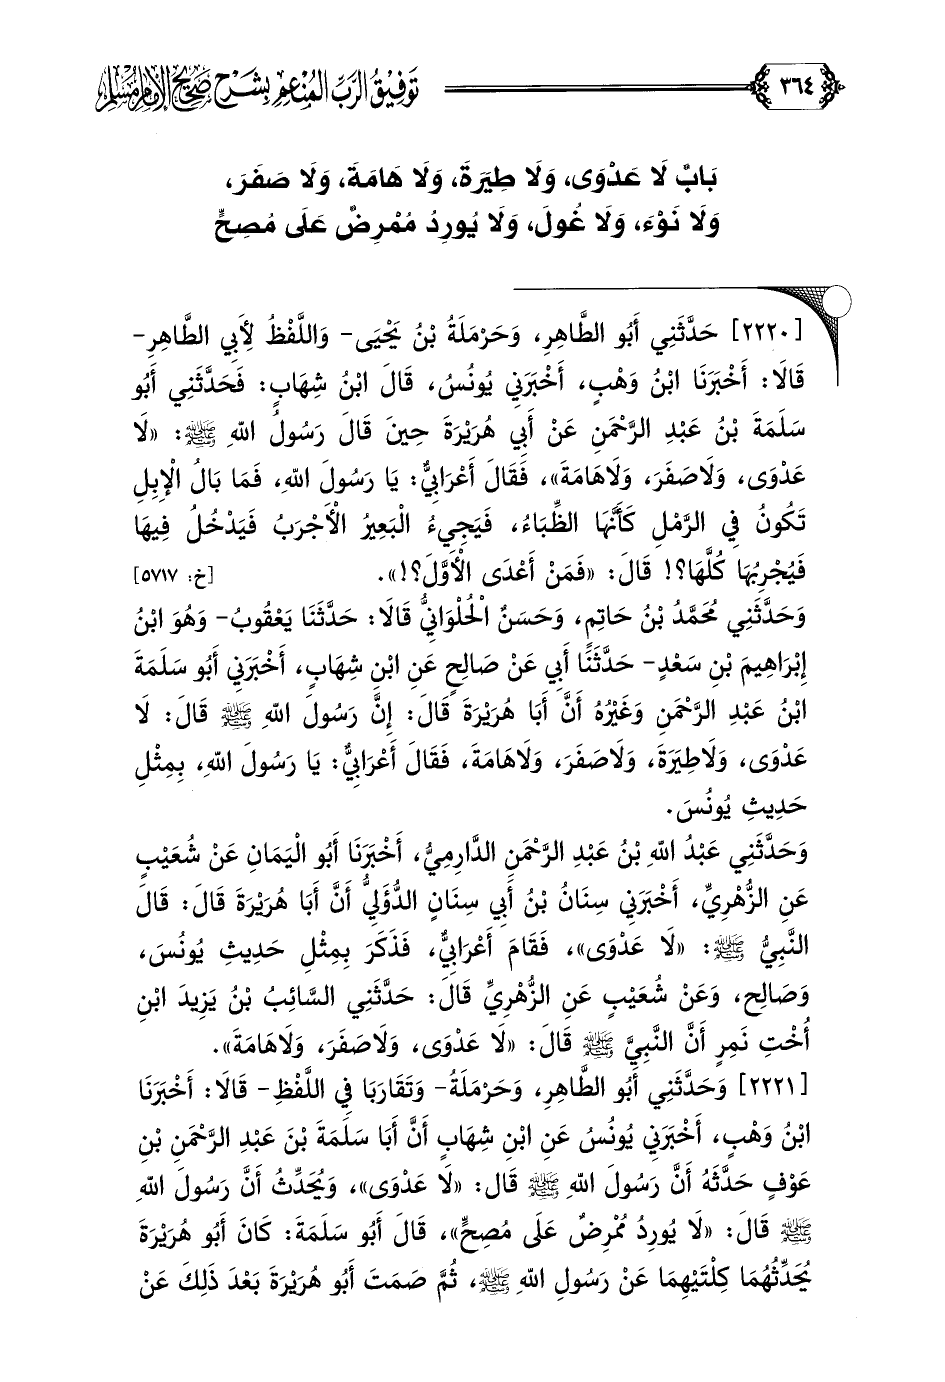 ٣٦٤
توفيق الرب المنعم بشرح صحيح الإمام مسلم
بَابٌ لَا عَدْوَى، وَلَا طِيَرَةَ، وَلَا هَامَةَ، وَلَا صَفَرَ،
وَلَا نَوْءَ، وَلَا غُولَ، وَلَا يُورِدُ مُمْرِضٌ عَلَى مُصِحٍّ
[٢٢٢٠] حَدَّثَنِي أَبُو الطَّاهِرِ، وَحَرْمَلَةُ بْنُ يَحْيَى- وَاللَّفْظُ لِأَبِي الطَّاهِرِ-
قَالَا: أَخْبَرَنَا ابْنُ وَهْبٍ، أَخْبَرَنِي يُونُسُ، قَالَ ابْنُ شِهَابٍ: فَحَدَّثَنِي أَبُو
سَلَمَةَ بْنُ عَبْدِ الرَّحْمَنِ عَنْ أَبِي هُرَيْرَةَ حِينَ قَالَ رَسُولُ اللهِ ﷺ: «لَا
عَدْوَى، وَلَاصَفَرَ، وَلَاهَامَةَ»، فَقَالَ أَعْرَابِيٌّ: يَا رَسُولَ اللهِ، فَمَا بَالُ الْإِبِلِ
تَكُونُ فِي الرَّمْلِ كَأَنَّهَا الظِّبَاءُ، فَيَجِيءُ الْبَعِيرُ الْأَجْرَبُ فَيَدْخُلُ فِيهَا
فَيُجْرِبُهَا كُلَّهَا؟! قَالَ: «فَمَنْ أَعْدَى الْأَوَّلَ؟!». [خ: ٥٧١٧]
وَحَدَّثَنِي مُحَمَّدُ بْنُ حَاتِمٍ، وَحَسَنٌ الْحُلْوَانِيُّ قَالَا: حَدَّثَنَا يَعْقُوبُ- وَهُوَ ابْنُ
إِبْرَاهِيمَ بْنِ سَعْدٍ- حَدَّثَنَا أَبِي عَنْ صَالِحٍ عَنِ ابْنِ شِهَابٍ، أَخْبَرَنِي أَبُو سَلَمَةَ
ابْنُ عَبْدِ الرَّحْمَنِ وَغَيْرُهُ أَنَّ أَبَا هُرَيْرَةَ قَالَ: إِنَّ رَسُولَ اللهِ ﷺ قَالَ: لَا
عَدْوَى، وَلَاطِيَرَةَ، وَلَاصَفَرَ، وَلَاهَامَةَ، فَقَالَ أَعْرَابِيٌّ: يَا رَسُولَ اللهِ، بِمِثْلِ
حَدِيثِ يُونُسَ.
وَحَدَّثَنِي عَبْدُ اللهِ بْنُ عَبْدِ الرَّحْمَنِ الدَّارِمِيُّ، أَخْبَرَنَا أَبُو الْيَمَانِ عَنْ شُعَيْبٍ
عَنِ الزُّهْرِيِّ، أَخْبَرَنِي سِنَانُ بْنُ أَبِي سِنَانٍ الدُّؤَلِيُّ أَنَّ أَبَا هُرَيْرَةَ قَالَ: قَالَ
النَّبِيُّ ﷺ: «لَا عَدْوَى»، فَقَامَ أَعْرَابِيٌّ، فَذَكَرَ بِمِثْلِ حَدِيثِ يُونُسَ،
وَصَالِحٍ، وَعَنْ شُعَيْبٍ عَنِ الزُّهْرِيِّ قَالَ: حَدَّثَنِي السَّائِبُ بْنُ يَزِيدَ ابْنِ
أُخْتِ نَمِرٍ أَنَّ النَّبِيَّ ﷺ قَالَ: «لَا عَدْوَى، وَلَاصَفَرَ، وَلَاهَامَةَ».
[٢٢٢١] وَحَدَّثَنِي أَبُو الطَّاهِرِ، وَحَرْمَلَةُ- وَتَقَارَبَا فِي اللَّفْظِ- قَالَا: أَخْبَرَنَا
ابْنُ وَهْبٍ، أَخْبَرَنِي يُونُسُ عَنِ ابْنِ شِهَابٍ أَنَّ أَبَا سَلَمَةَ بْنَ عَبْدِ الرَّحْمَنِ بْنِ
عَوْفٍ حَدَّثَهُ أَنَّ رَسُولَ اللهِ ﷺ قَال: «لَا عَدْوَى»، وَيُحَدِّثُ أَنَّ رَسُولَ اللهِ
ﷺ قَالَ: «لَا يُورِدُ مُمْرِضٌ عَلَى مُصِحٍّ»، قَالَ أَبُو سَلَمَةَ: كَانَ أَبُو هُرَيْرَةَ
يُحَدِّثُهُمَا كِلْتَيْهِمَا عَنْ رَسُولِ اللهِ ﷺ، ثُمَّ صَمَتَ أَبُو هُرَيْرَةَ بَعْدَ ذَلِكَ عَنْ